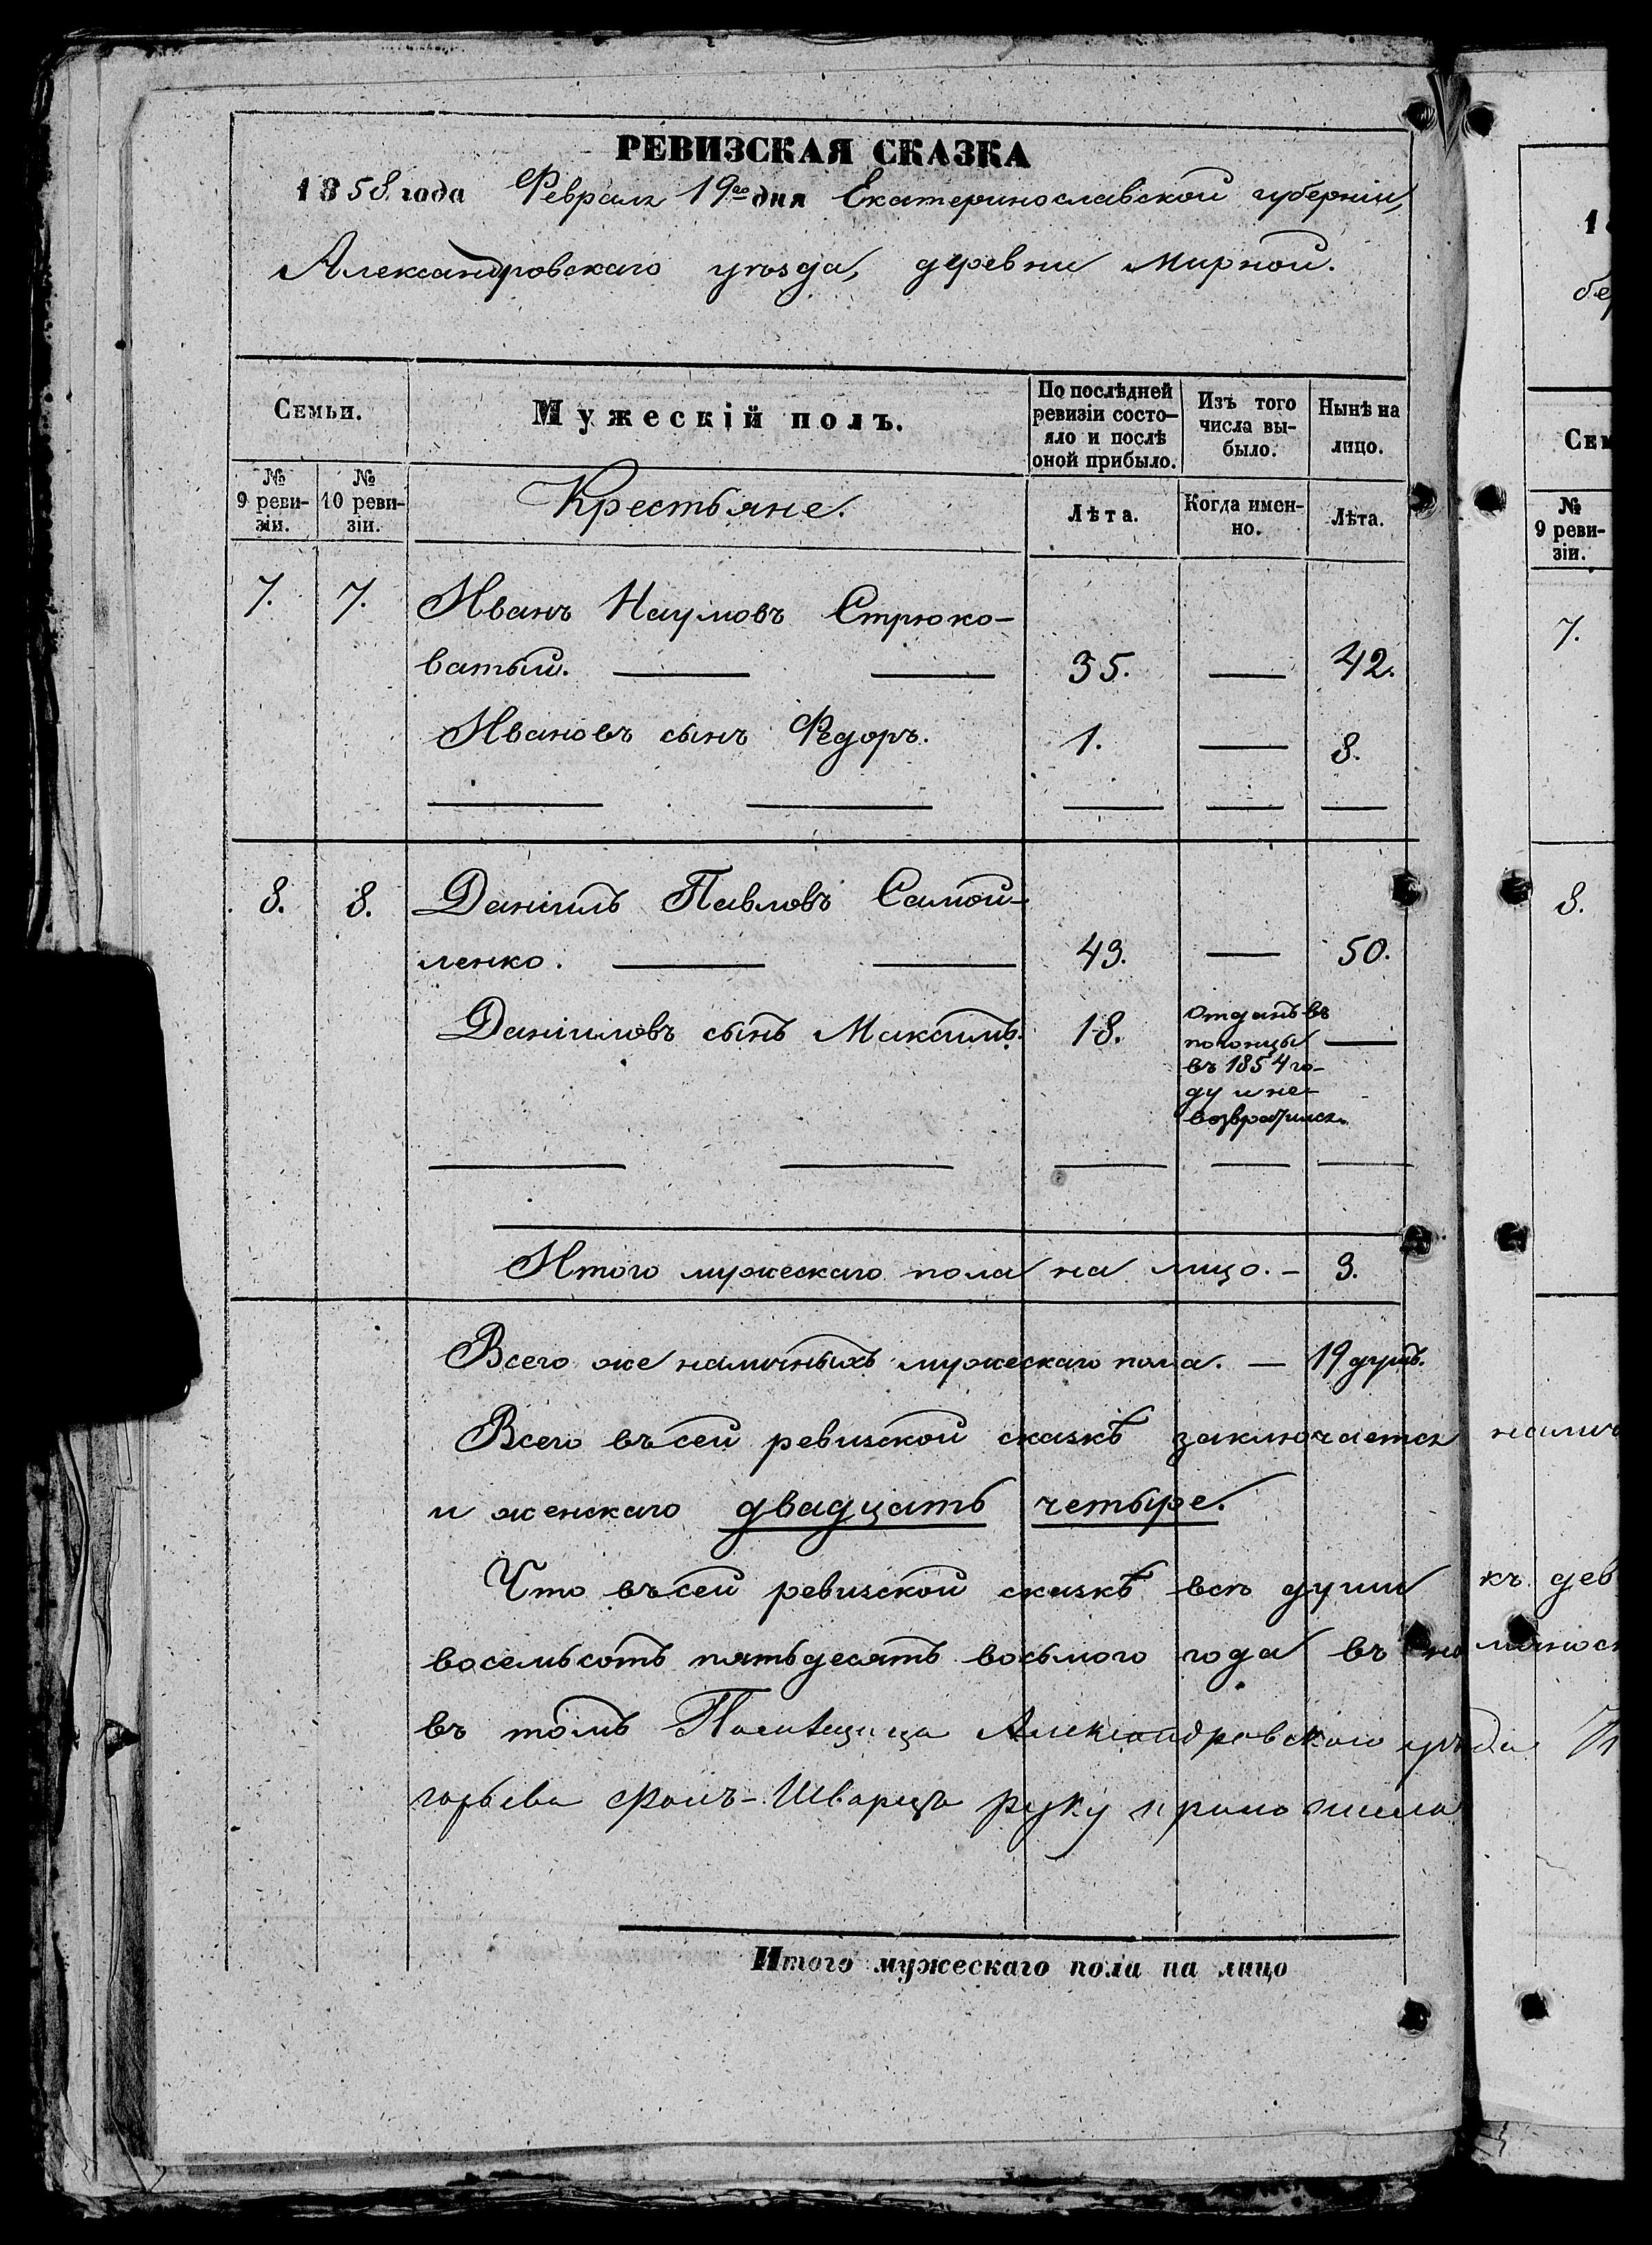 РЕВИЗСКАЯ СКАЗКА
1858 года Февраля 19го дня Екатеринославской губерніи,
Александровскаго уѣзда, деревни Мирной.
Семьи.
Мужескій полъ.
По послѣдней ревизіи состо-
яло и послѣ оной прибыло.
Изъ того числа вы-
было.
Нынѣ на лицо.
№ 9 реви-
зіи.
№ 10 реви-
зіи.
Крестьяне.
Лѣта.
Когда имен-
но.
Лѣта.
7. 7. Иванъ Наумовъ Стрюко-
ватый. — — 35. — 42.
Ивановъ сынъ Федоръ. 1. — 8.
8. 8. Даніилъ Павловъ Самой-
ленко. — — 43. — 50.
Даніиловъ сынъ Максимъ. 18. —
Отданъ въ
погонцы
въ 1854 го-
ду и не
возвратился
Итого мужескаго пола на лицо. — 3.
Всего же наличныхъ мужескаго пола. — 19 душъ.
Всего въ сей ревизской сказкѣ заключается налич
и женскаго двадцать четыре.
Что въ сей ревизской сказкѣ всѣ души къ дев
восемьсотъ пятьдесятъ восьмого года въ наличнос
въ томъ Помѣщица Александровскаго уѣзда
фонъ-Шварцъ руку приложила
Итого мужескаго пола на лицо
1
бе
Сем
№
9 реви-
зіи.
7.
8.